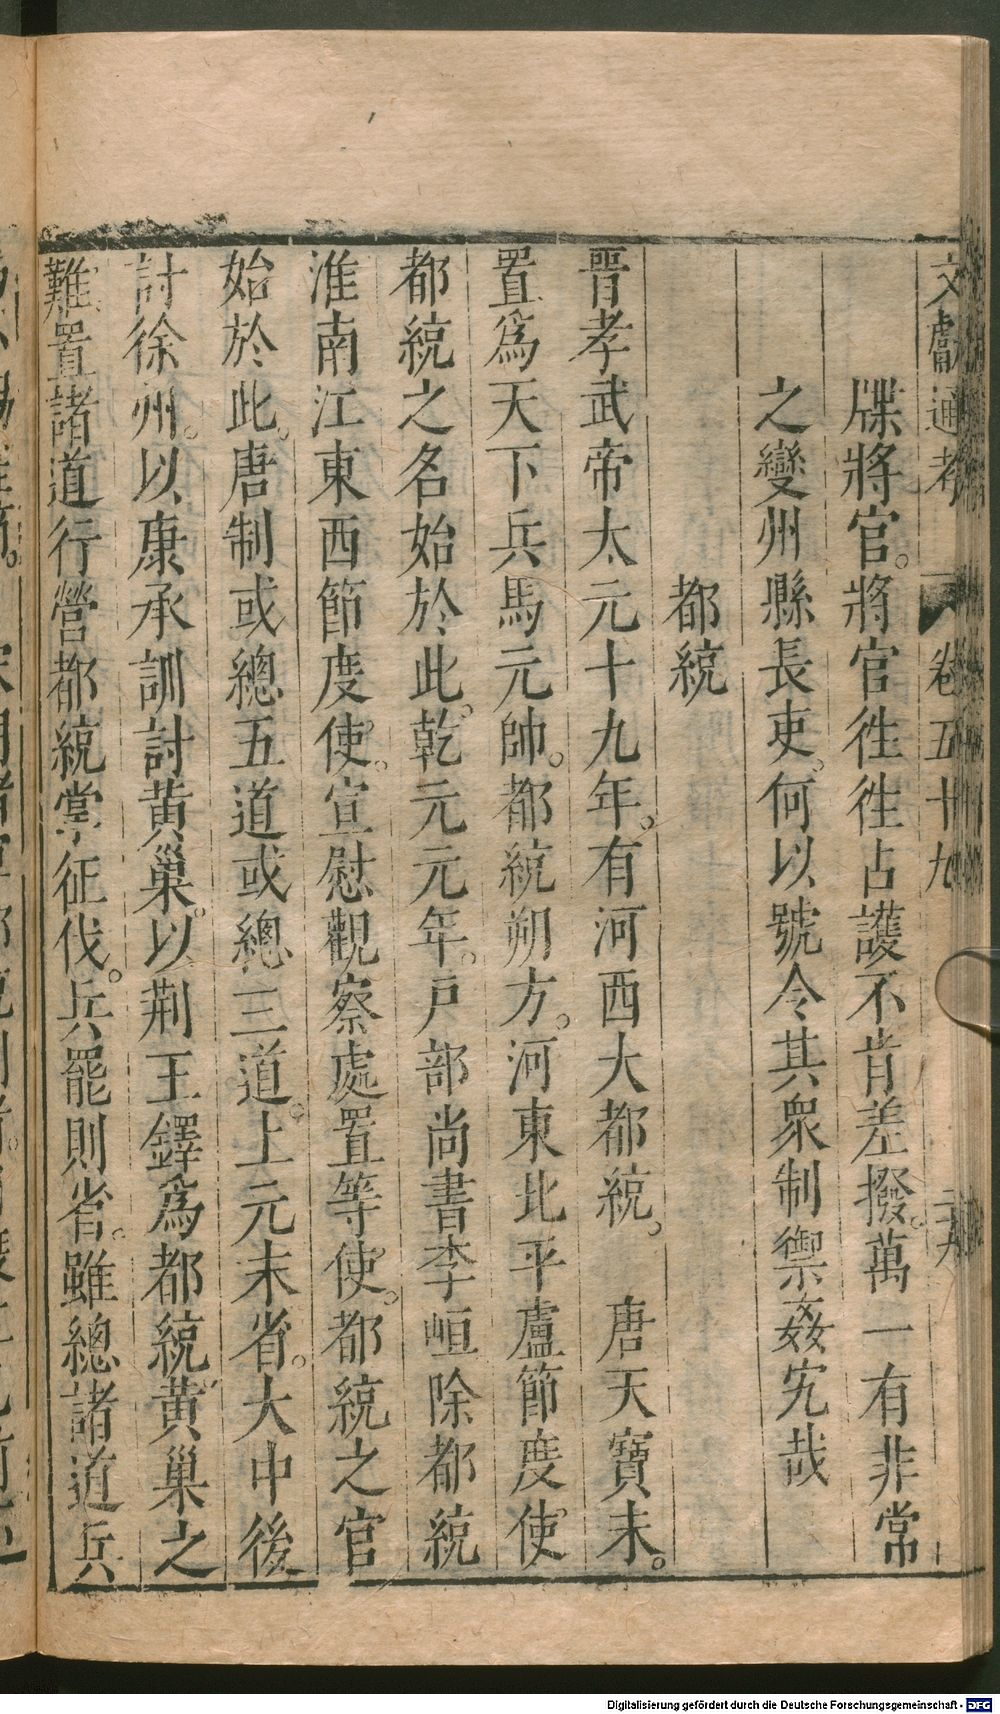 文獻通考 卷五十九
牒將官。將官徃徃占護不肯差撥。萬一有非常
之變州縣長吏。何以號令其衆制禦姦宄哉
都統
晉孝武帝太元十九年。有河西大都統。 唐天寶末。
置爲天下兵馬元帥。都統朔方。河東北平盧節度使
都統之名始於此。乾元元年。戸部尚書李峘除都統
淮南江東西節度使。宣慰觀察處置等使。都統之官
始於此。唐制或總五道或總三道。上元末省。大中後
討徐州。以康承訓討黄巢。以荆王鐸爲都統黄巢之
難置諸道行營都統掌征伐。兵罷則省。雖總諸道兵
Digitalisierung gefördert durch die Deutsche Forschungsgemeinschaft - DFG